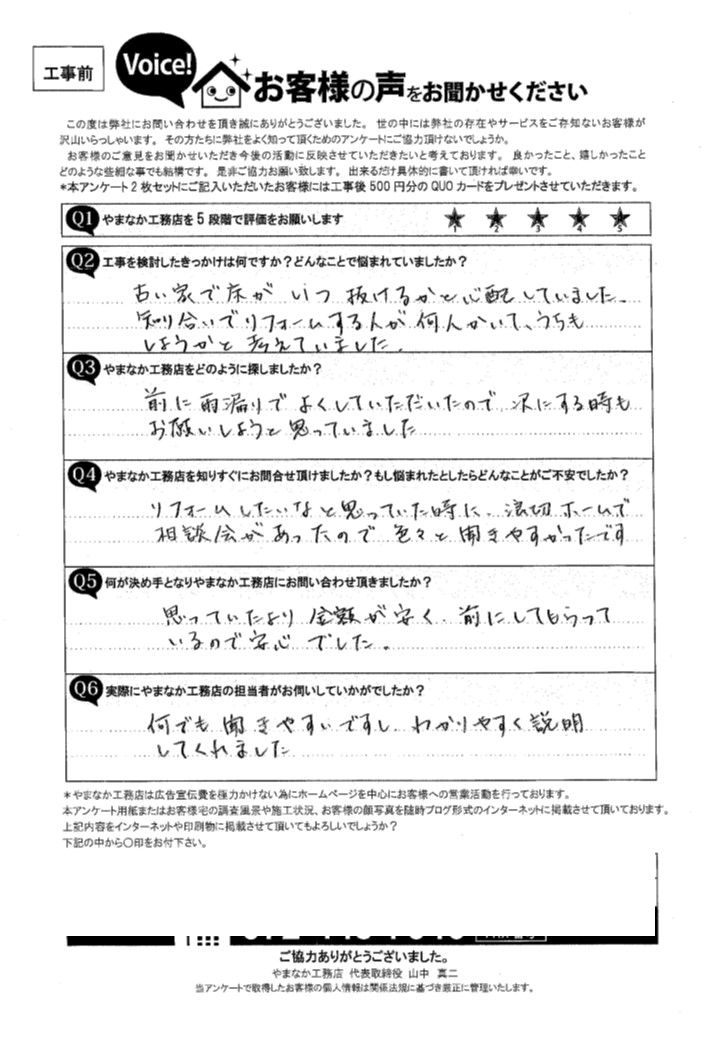 工事前
Voice!
お客様の声をお聞かせください
この度は弊社にお問い合わせを頂き誠にありがとうございました。 世の中には弊社の存在やサービスをご存知ないお客様が
沢山いらっしゃいます。 その方たちに弊社をよく知って頂くためのアンケートにご協力頂けないでしょうか。
お客様のご意見をお聞かせいただき今後の活動に反映させていただきたいと考えております。 良かったこと、嬉しかったこと
どのような些細な事でも結構です。 是非ご協力お願い致します。 出来るだけ具体的に書いて頂ければ幸いです。
*本アンケート2枚セットにご記入いただいたお客様には工事後500円分のQUOカードをプレゼントさせていただきます。
Q1 やまなか工務店を5段階で評価をお願いします
1 2 3 4 5
Q2 工事を検討したきっかけは何ですか？どんなことで悩まれていましたか？
古い家で床がいつ抜けるかと心配していました。
知り合いでリフォームする人が何人かいて、うちも
しようかと考えていました。
Q3 やまなか工務店をどのように探しましたか？
前に雨漏りでよくしていただいたので次にする時も
お願いしようと思っていました
Q4 やまなか工務店を知りすぐにお問合せ頂けましたか？もし悩まれたとしたらどんなことがご不安でしたか？
リフォームしたいなと思っていた時に、浪切ホールで
相談会があったので色々と聞きやすかったです
Q5 何が決め手となりやまなか工務店にお問い合わせ頂きましたか？
思っていたより金額が安く、前にしてもらって
いるので安心でした。
Q6 実際にやまなか工務店の担当者がお伺いしていかがでしたか？
何でも聞きやすいですし、わかりやすく説明
してくれました
*やまなか工務店は広告宣伝費を極力かけない為にホームページを中心にお客様への営業活動を行っております。
本アンケート用紙またはお客様宅の調査風景や施工状況、お客様の顔写真を随時ブログ形式のインターネットに掲載させて頂いております。
上記内容をインターネットや印刷物に掲載させて頂いてもよろしいでしょうか？
下記の中から〇印をお付下さい。
ご協力ありがとうございました。
やまなか工務店 代表取締役 山中 真二
当アンケートで取得したお客様の個人情報は関係法規に基づき厳正に管理いたします。